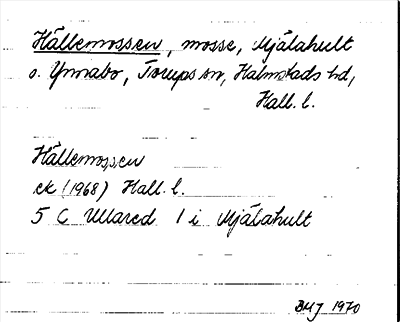 Hällemossen, mosse, Mjälahult
o. Ynnabo, Torups sn, Halmstads hd,
Hall. l.
Hällemossen
ek (1968) Hall. l.
5 C Ullared 1 i Mjälahult
BMJ 1970